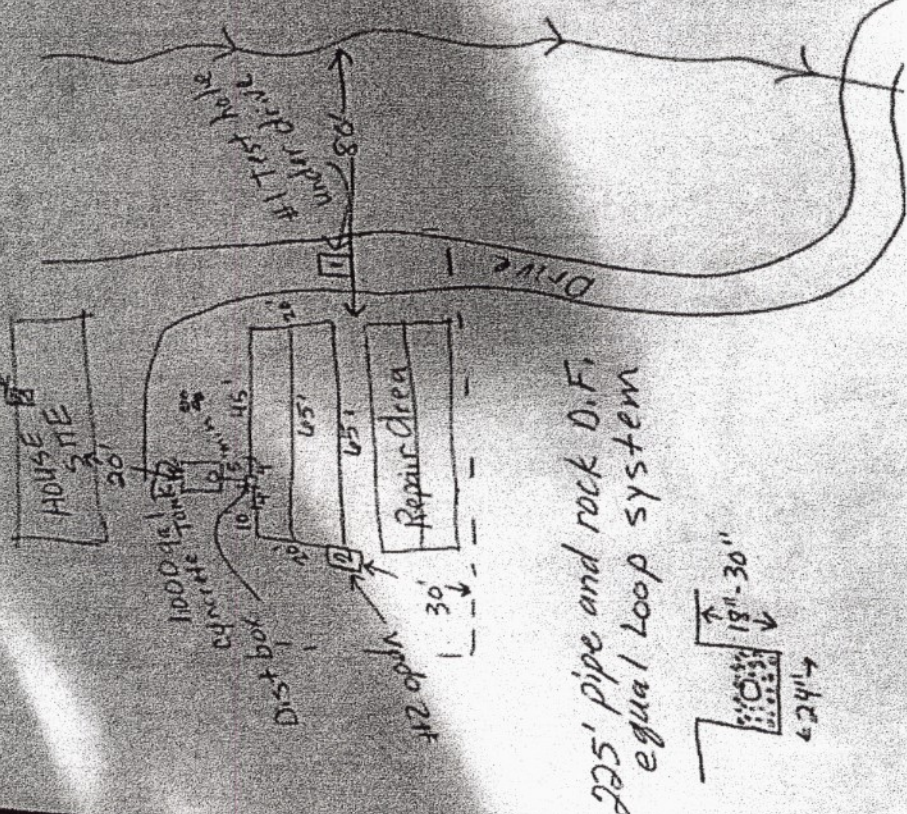 HOUSE
SITE
20'
1000 gal
concrete
TANK
Dist box
5' min
10'
45'
20'
65'
65'
Repair Area
2
#2 opdn
30'
#1 Test hole
under drive
80'
1
Drive
225' pipe and rock D.F.
equal Loop system
18"-30"
24"